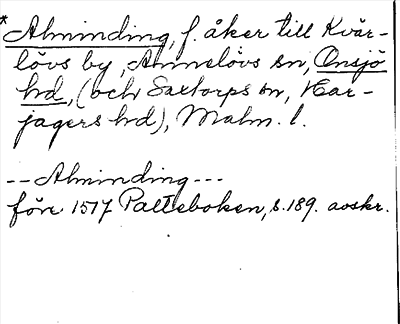 *Alminding, f. åker till Kvär-
lövs by, Annelövs sn, Onsjö
hd, (och Saxtorps sn, Har-
jagers hd), Malm. l.
-- Alminding ---
före 1517 Palteboken, s. 189. avskr.